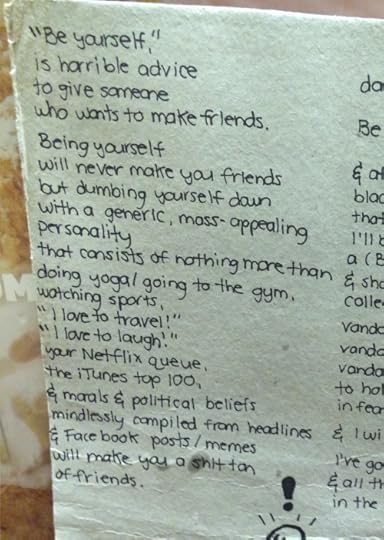 "Be yourself,"
is horrible advice
to give someone
who wants to make friends.
Being yourself
will never make you friends
but dumbing yourself down
with a generic, mass-appealing
personality
that consists of nothing more than
doing yoga/going to the gym,
watching sports,
"I love to travel!"
"I love to laugh!"
your Netflix queue,
the iTunes top 100,
& morals & political beliefs
mindlessly compiled from headlines
& Facebook posts/memes
will make you a shit ton
of friends.
!
Be
that
I'll
a (
& sh
colle
vanda
vanda
vanda
to ho
in fea
& I wi
I've go
& all th
in the